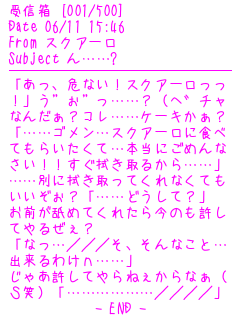 受信箱 [001/500]
Date 06/11 15:46
From スクアーロ
Subject ん……?
「あっ、危ない！スクアーロっっ
！」う”お”っ……？（ベ゛チャ
なんだぁ？コレ……ケーキかぁ？
「……ゴメン…スクアーロに食べ
てもらいたくて…本当にごめんな
さい！！すぐ拭き取るから……」
……別に拭き取ってくれなくても
いいぞぉ？「……どうして？」
お前が舐めてくれたら今のも許し
てやるぜぇ？
「なっ…///そ、そんなこと…
出来るわけヘ……」
じゃあ許してやらねぇからなぁ（
S笑）「………………////」
- END -